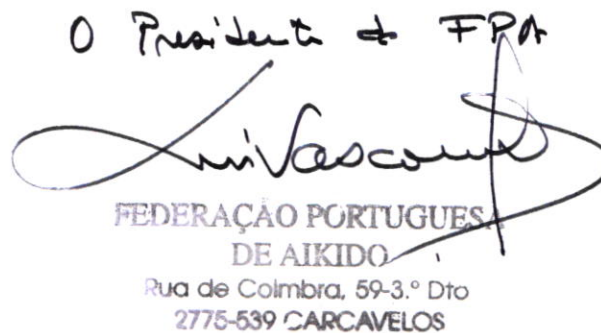 O Presidente da FPA
FEDERAÇÃO PORTUGUESA
DE AIKIDO
Rua de Coimbra, 59-3.º Dto
2775-539 CARCAVELOS